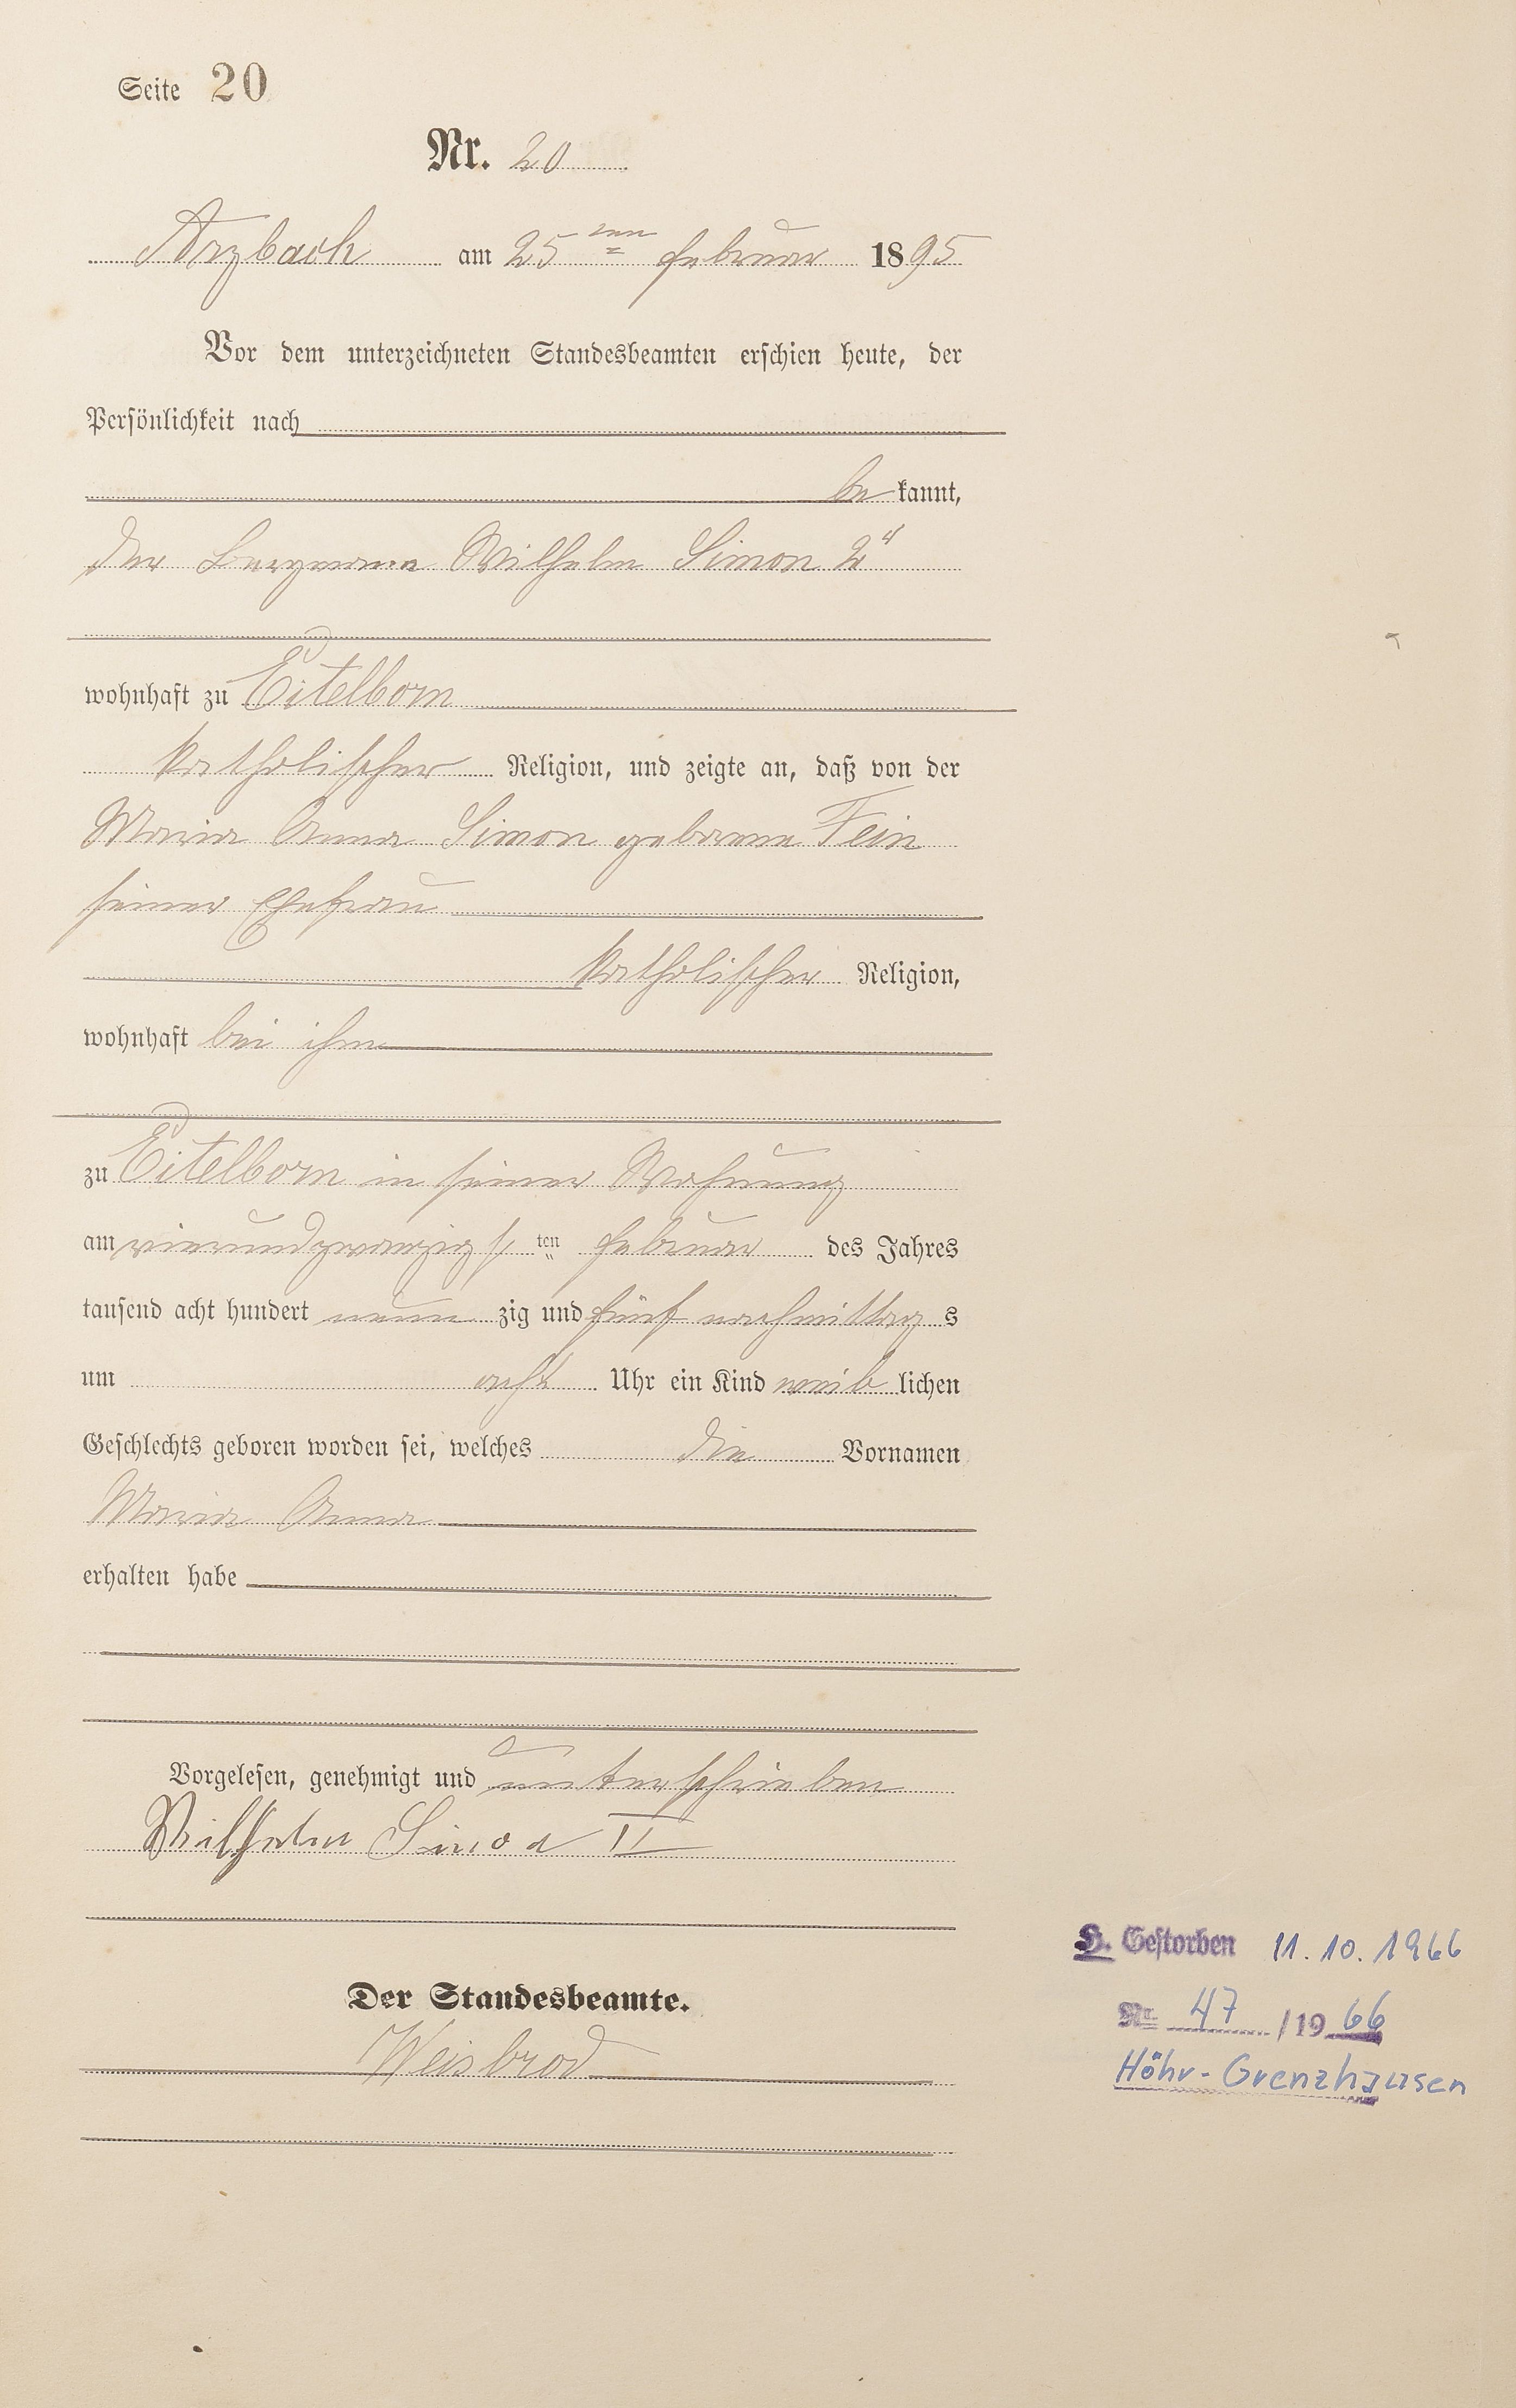 Seite 20
Nr. 20
Arzbach am 25ten Februar 1895
Vor dem unterzeichneten Standesbeamten erschien heute, der
Persönlichkeit nach
be kannt,
der Bergmann Wilhelm Simon 2r
wohnhaft zu Eitelborn
katholischer Religion, und zeigte an, daß von der
Maria Anna Simon geborene Fein
seiner Ehefrau
katholischer Religion,
wohnhaft bei ihm
zu Eitelborn in seiner Wohnung
am vierundzwanzigs ten Februar des Jahres
tausend acht hundert neun zig und fünf nachmittag s
um acht Uhr ein Kind weib lichen
Geschlechts geboren worden sei, welches die Vornamen
Maria Anna
erhalten habe
Vorgelesen, genehmigt und unterschrieben
Wilhelm Simon II
Der Standesbeamte.
Weisbrod
H. Gestorben 11.10.1966
Nr. 47 /19 66
Höhr-Grenzhausen